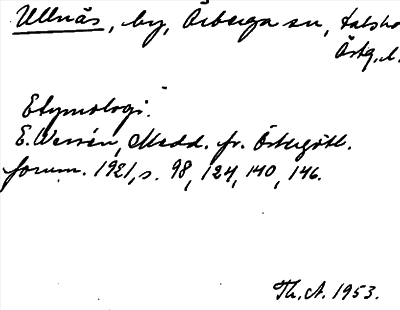 Ullnäs, by, Örberga sn,
Östg. l.
Etymologi.
E. Wessén, Medd. fr. Östergötl.
fornm. 1921, s. 98, 124, 140, 146.
Th. A. 1953.